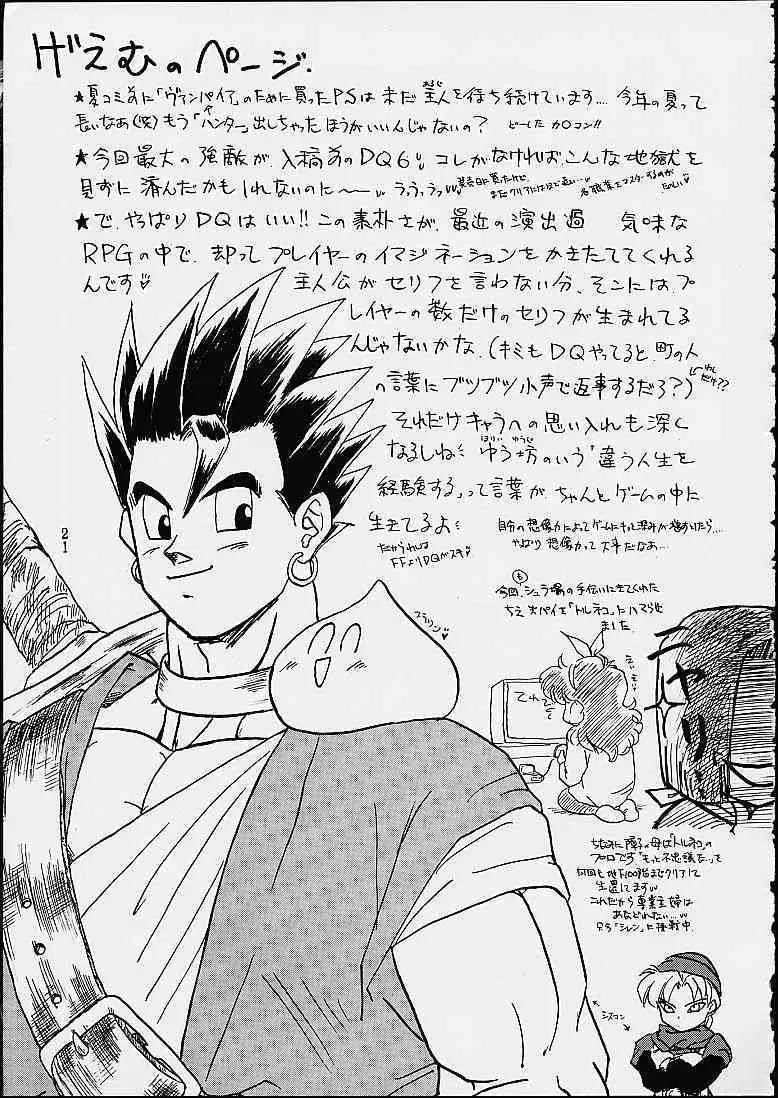 げえむのページ.
★夏コミ前に「ヴァンパイア」のために買ったPSは未だ主人を待ち続けています.... 今年の夏って
長いなあ(笑)もう「ハンター」出しちゃったほうがいいんじゃないの? どーしたカ○コン!!
★今回最大の強敵が、入稿前のDQ6 コレがなければこんな地獄を
見ずに済んだかもしれないのに〜 ううっうっ 発売日に買ったけど、
まだクリアにはほど遠い…
★で、やっぱりDQはいい!! この素朴さが、最近の演出過 気味な
RPGの中で、却ってプレイヤーのイマジネーションをかきたててくれる
んです♡ 主人公がセリフを言わない分、そこには、プ
レイヤーの数だけのセリフが生まれてる
んじゃないかな。(キミもDQやってると、町の人
の言葉にブツブツ小声で返事するだろ?)
それだけキャラへの思い入れも深く
なるしね ゆう坊のいう「違う人生を
ほりい ゆうじ
経験する」って言葉が、ちゃんとゲームの中に
生きてるよ
だからわれは
FFよりDQがスキ
自分の想像力によってゲームにもって深みが増すしたら…
やっぱり想像力って大事だなあ…
今回、シュラ場の手伝いにきてくれた
も
ちえオパイを「トルネコ」にハマらせ
ました
プラリン♡
てれ
ニヤリ
21
ちなみに the母は「トルネコ」の
プロです「もっと不思議な」って
生還してます
これだから専業主婦は
あなどれない…
只今「シレン」に挑戦中.
シスコン